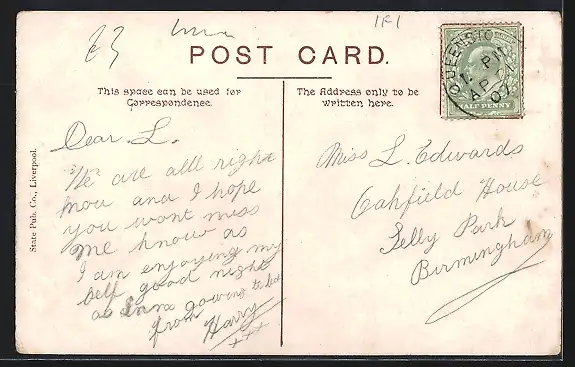 23
1f1
POST CARD.
This space can be used for
Correspondence.
The Address only to be
written here.
QUEENSTO
PM
AP
07
HALF PENNY
State Pub. Co., Liverpool.
Dear L.
We are alll right
mou and I hope
you wont miss
me know as
I am enjoying my
self good night
as gowing to bed
from Harry
xxx
Miss L Edwards
Oahfield House
Selly Park
Birmingham